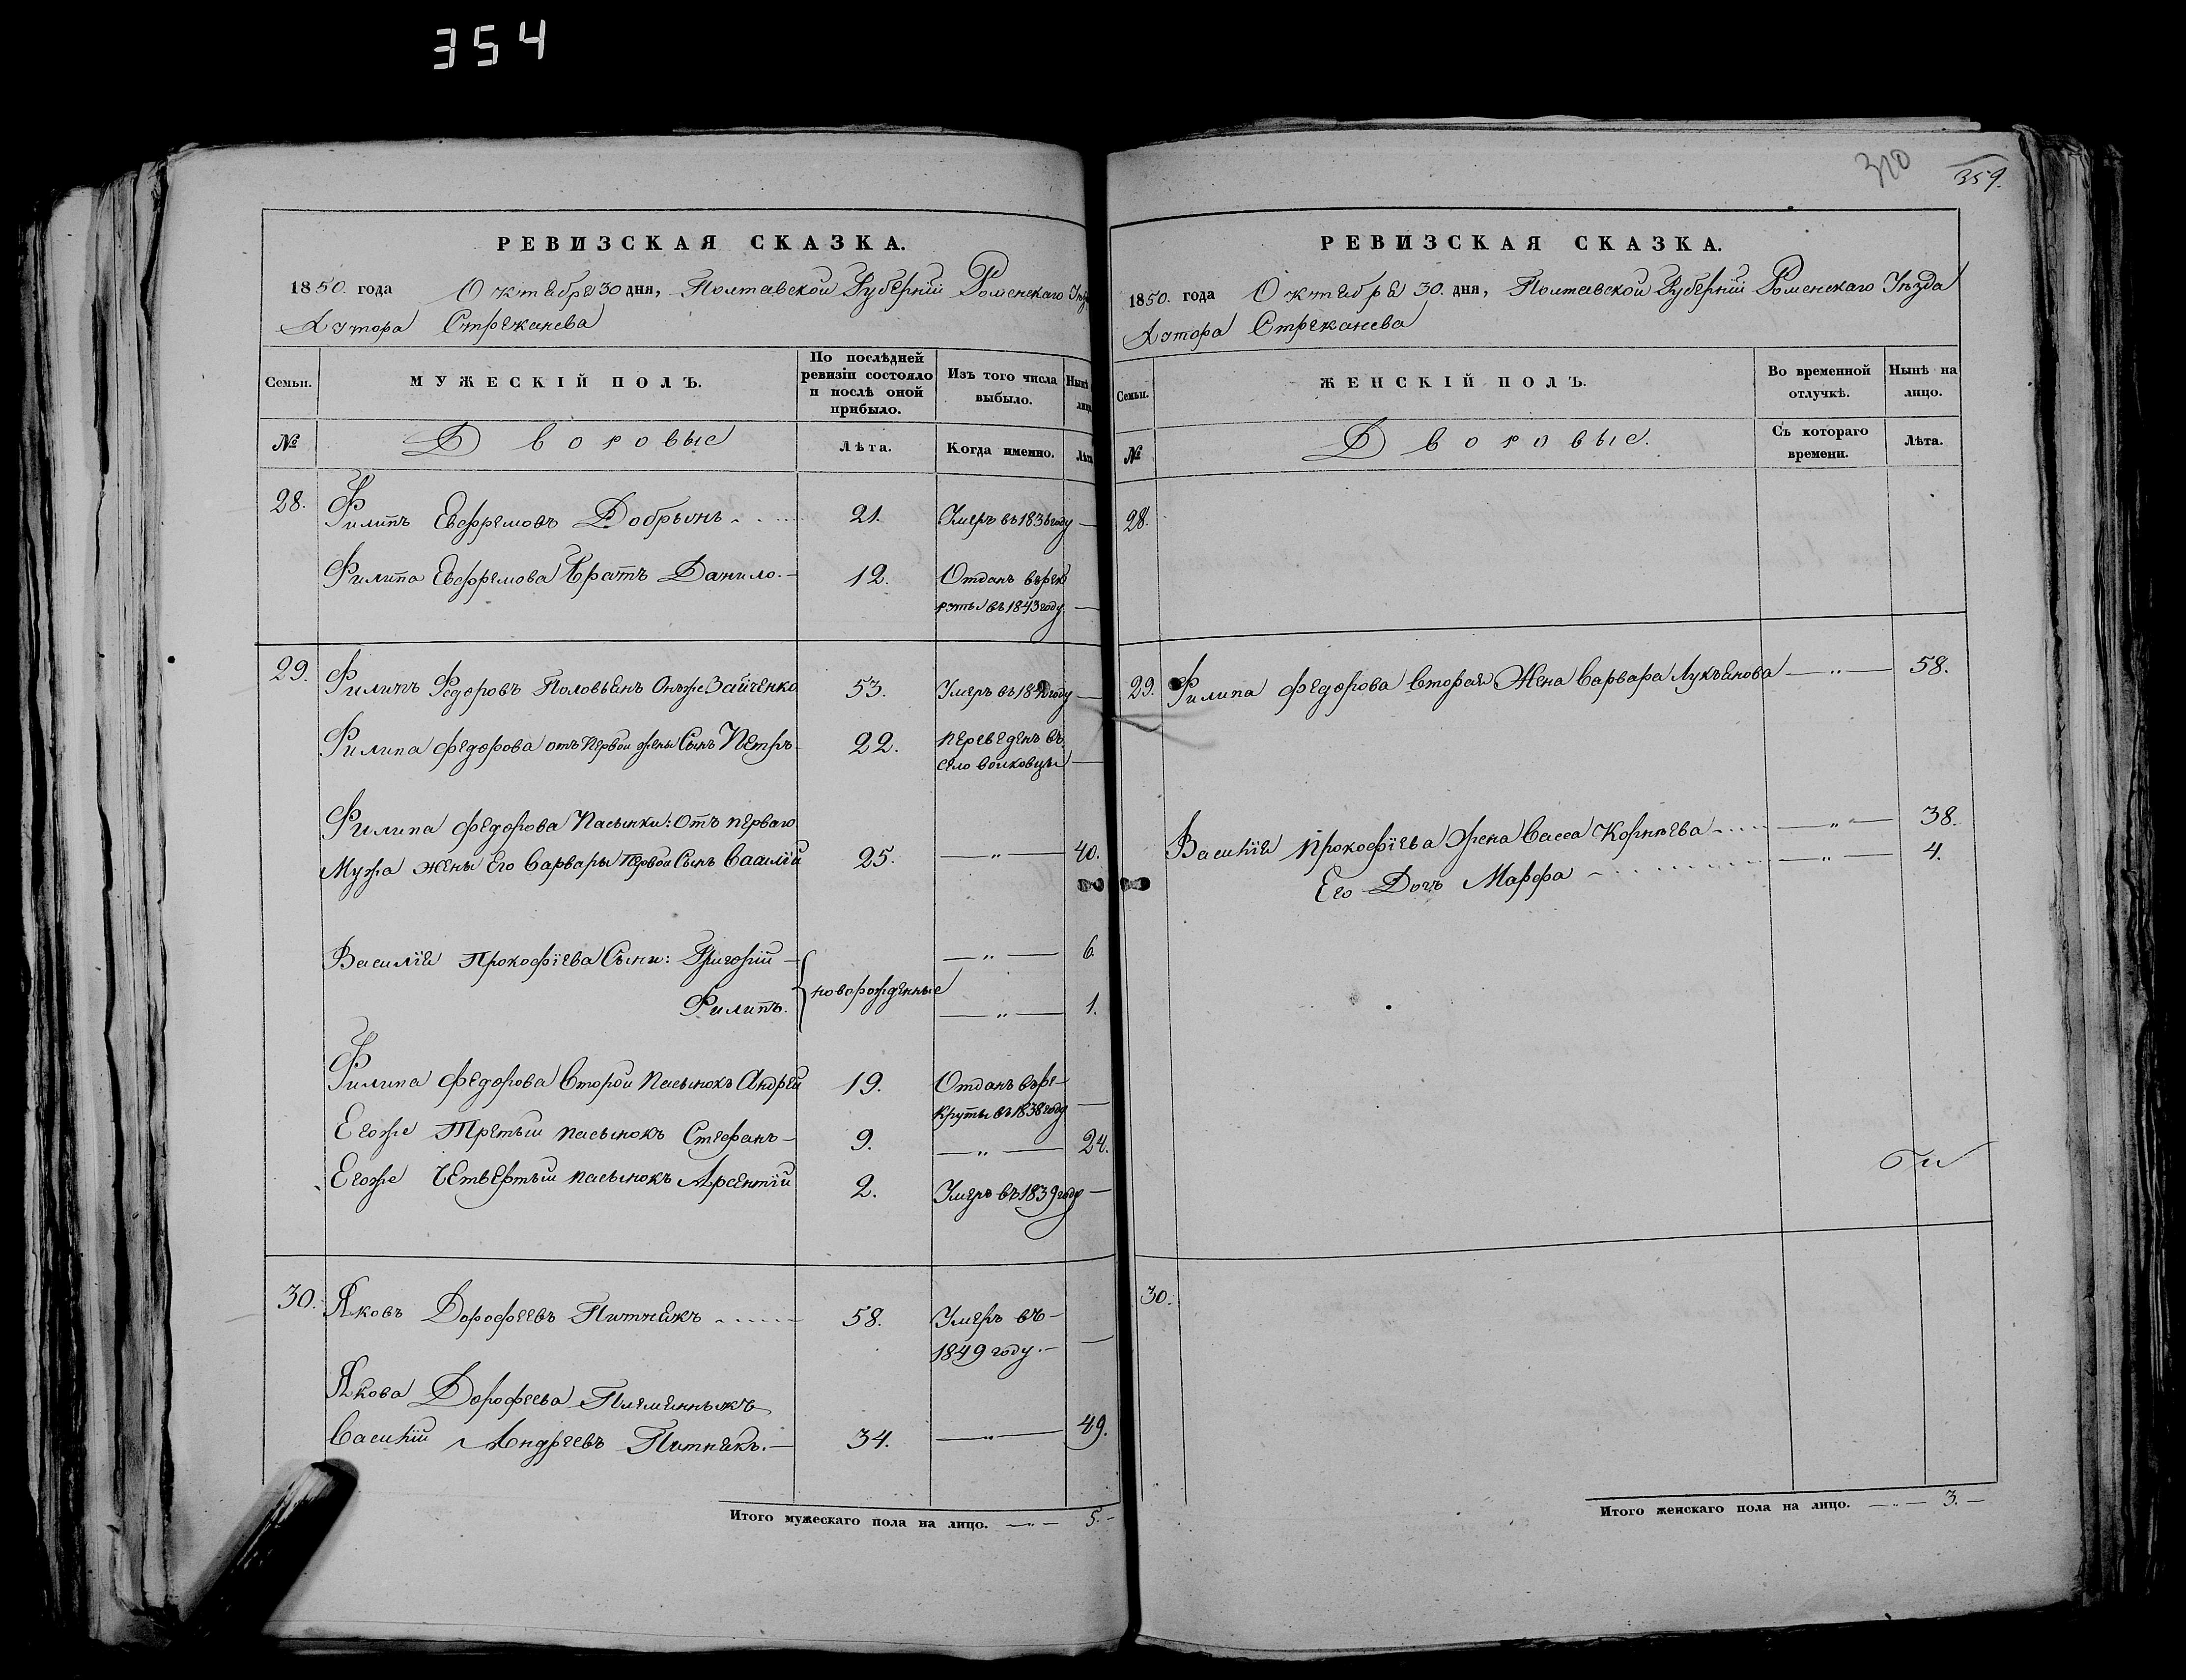 354
310
359.
РЕВИЗСКАЯ СКАЗКА.
1850. года Октября 30 дня, Полтавской Губерніи Роменскаго Уѣз
Хутора Стрежанева
Семьи. МУЖЕСКІЙ ПОЛЪ. По послѣдней ревизіи состояло и послѣ оной прибыло. Изъ того числа выбыло. Нынѣ лицо
№ Дворовые Лѣта. Когда именно. Лѣта
28. Филипъ Евфремовъ 21. Умеръ въ 1836 году —
Филипа Евфремова Братъ Данило. — 12. Отданъ въ рек
руты въ 1843 году —
29. Филипъ Федоровъ Половьянъ Онъже Зайченко 53. Умеръ въ году —
Филипа Федорова отъ первой жены Сынъ Петръ 22. переведенъ въ
село Волковцы —
Филипа Федорова Пасынки: Отъ перваго
Мужа жены Его Варвары первой Сынъ Василій 25. — „ — 40.
Василія Прокофіева Сыни: Григорій — новорожденные — „ — 6.
Филипъ. — „ — 1.
Филипа Федорова Второй пасынокъ Андрей 19. Отданъ въ ре-
круты въ 1838 году —
Егоже Третьій пасынокъ Стефанъ — 9. — „ — 24.
Егоже Четвертый пасынокъ Арсентій 2. Умеръ въ 1839 году —
30. Яковъ Дорофеевъ Питнякъ 58. Умеръ въ —
1849 году. — —
Якова Дорофеева Племянныкъ
Василій Андреевъ Питнякъ. — 34. — „ — 49.
Итого мужескаго пола на лицо. — „ — 5. —
РЕВИЗСКАЯ СКАЗКА.
1850. года Октября 30. дня, Полтавской Губерніи Роменскаго Уѣзда
Хутора Стрежанева
Семьи. ЖЕНСКІЙ ПОЛЪ. Во временной отлучкѣ. Нынѣ на лицо.
№ Дворовые. Съ котораго времени. Лѣта.
28.
29. Филипа Федорова Вторая Жена Варвара Лукьянова — „ — 58.
Василія Прокофіева Жена Васса Корнѣева — „ — 38.
Его Дочь Марфа — „ — 4.
30.
Итого женскаго пола на лицо. — „ — 3. —